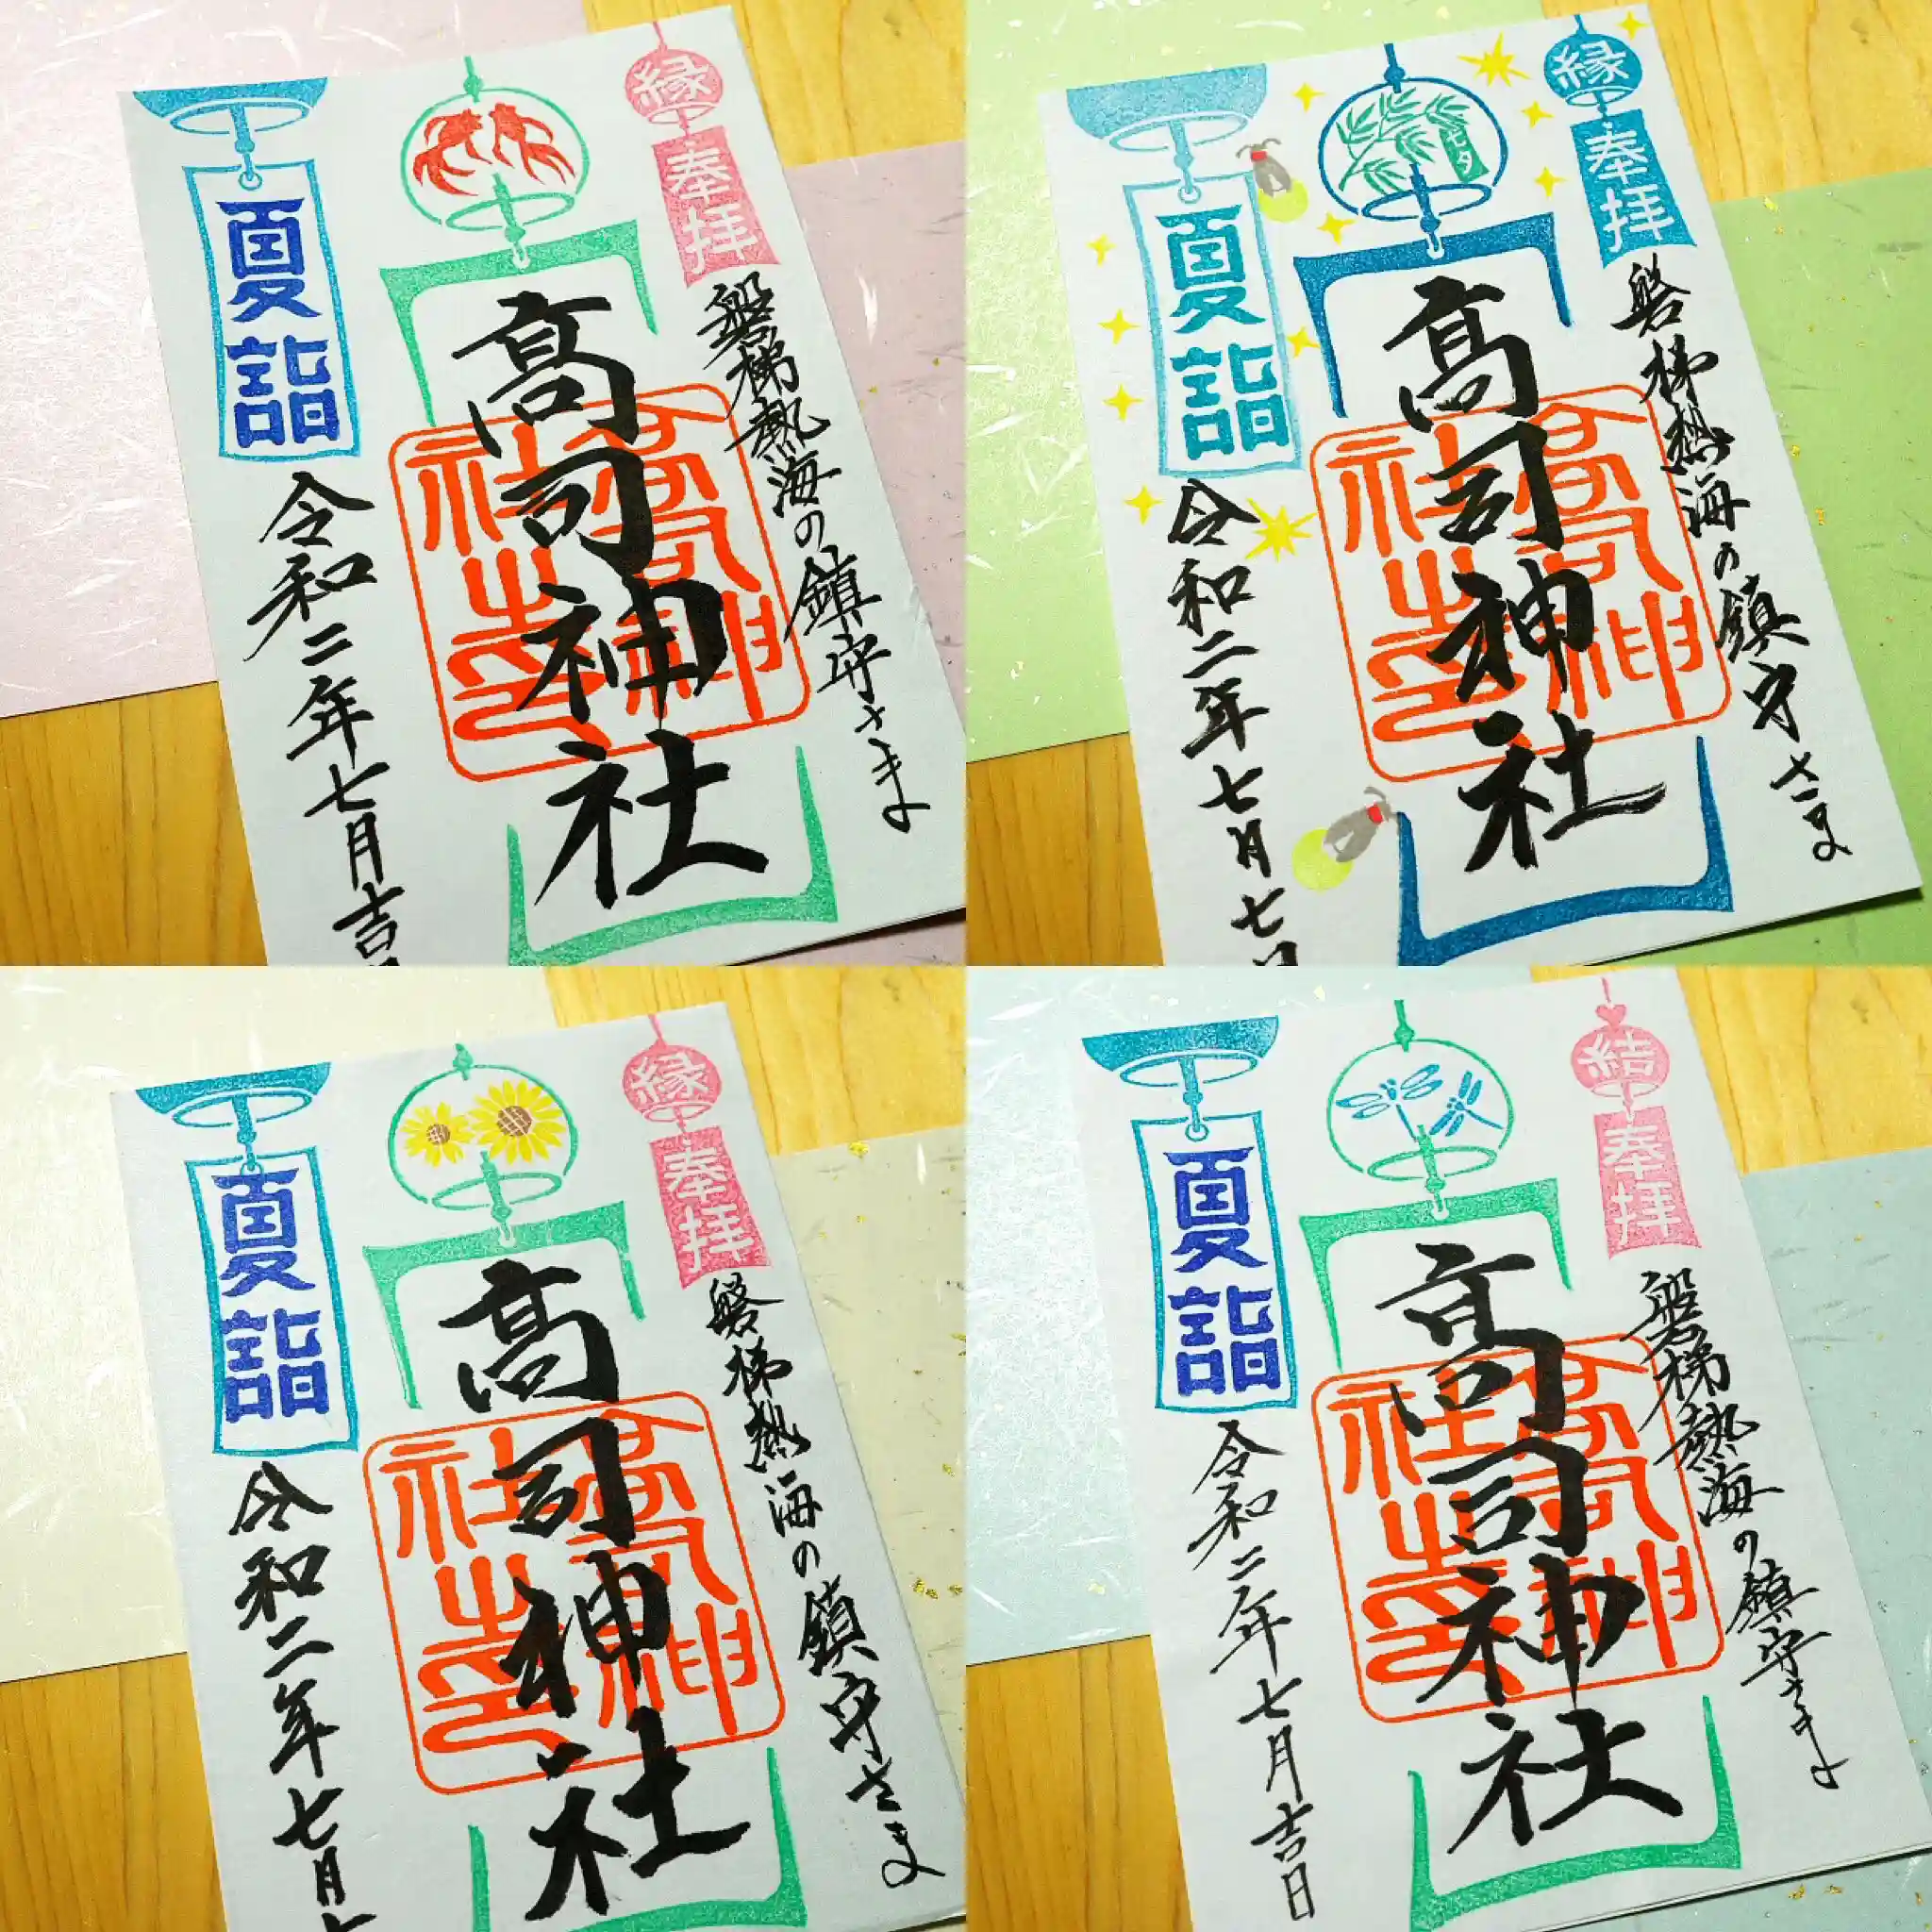 縁
奉拝
磐梯熱海の鎮守さま
高司神社
高司神社之印
夏詣
令和二年七月吉日
縁
奉拝
磐梯熱海の鎮守さま
七夕
高司神社
高司神社之印
夏詣
令和二年七月七日
縁
奉拝
磐梯熱海の鎮守さま
高司神社
高司神社之印
夏詣
令和二年七月
結
奉拝
磐梯熱海の鎮守さま
高司神社
高司神社之印
夏詣
令和二年七月吉日